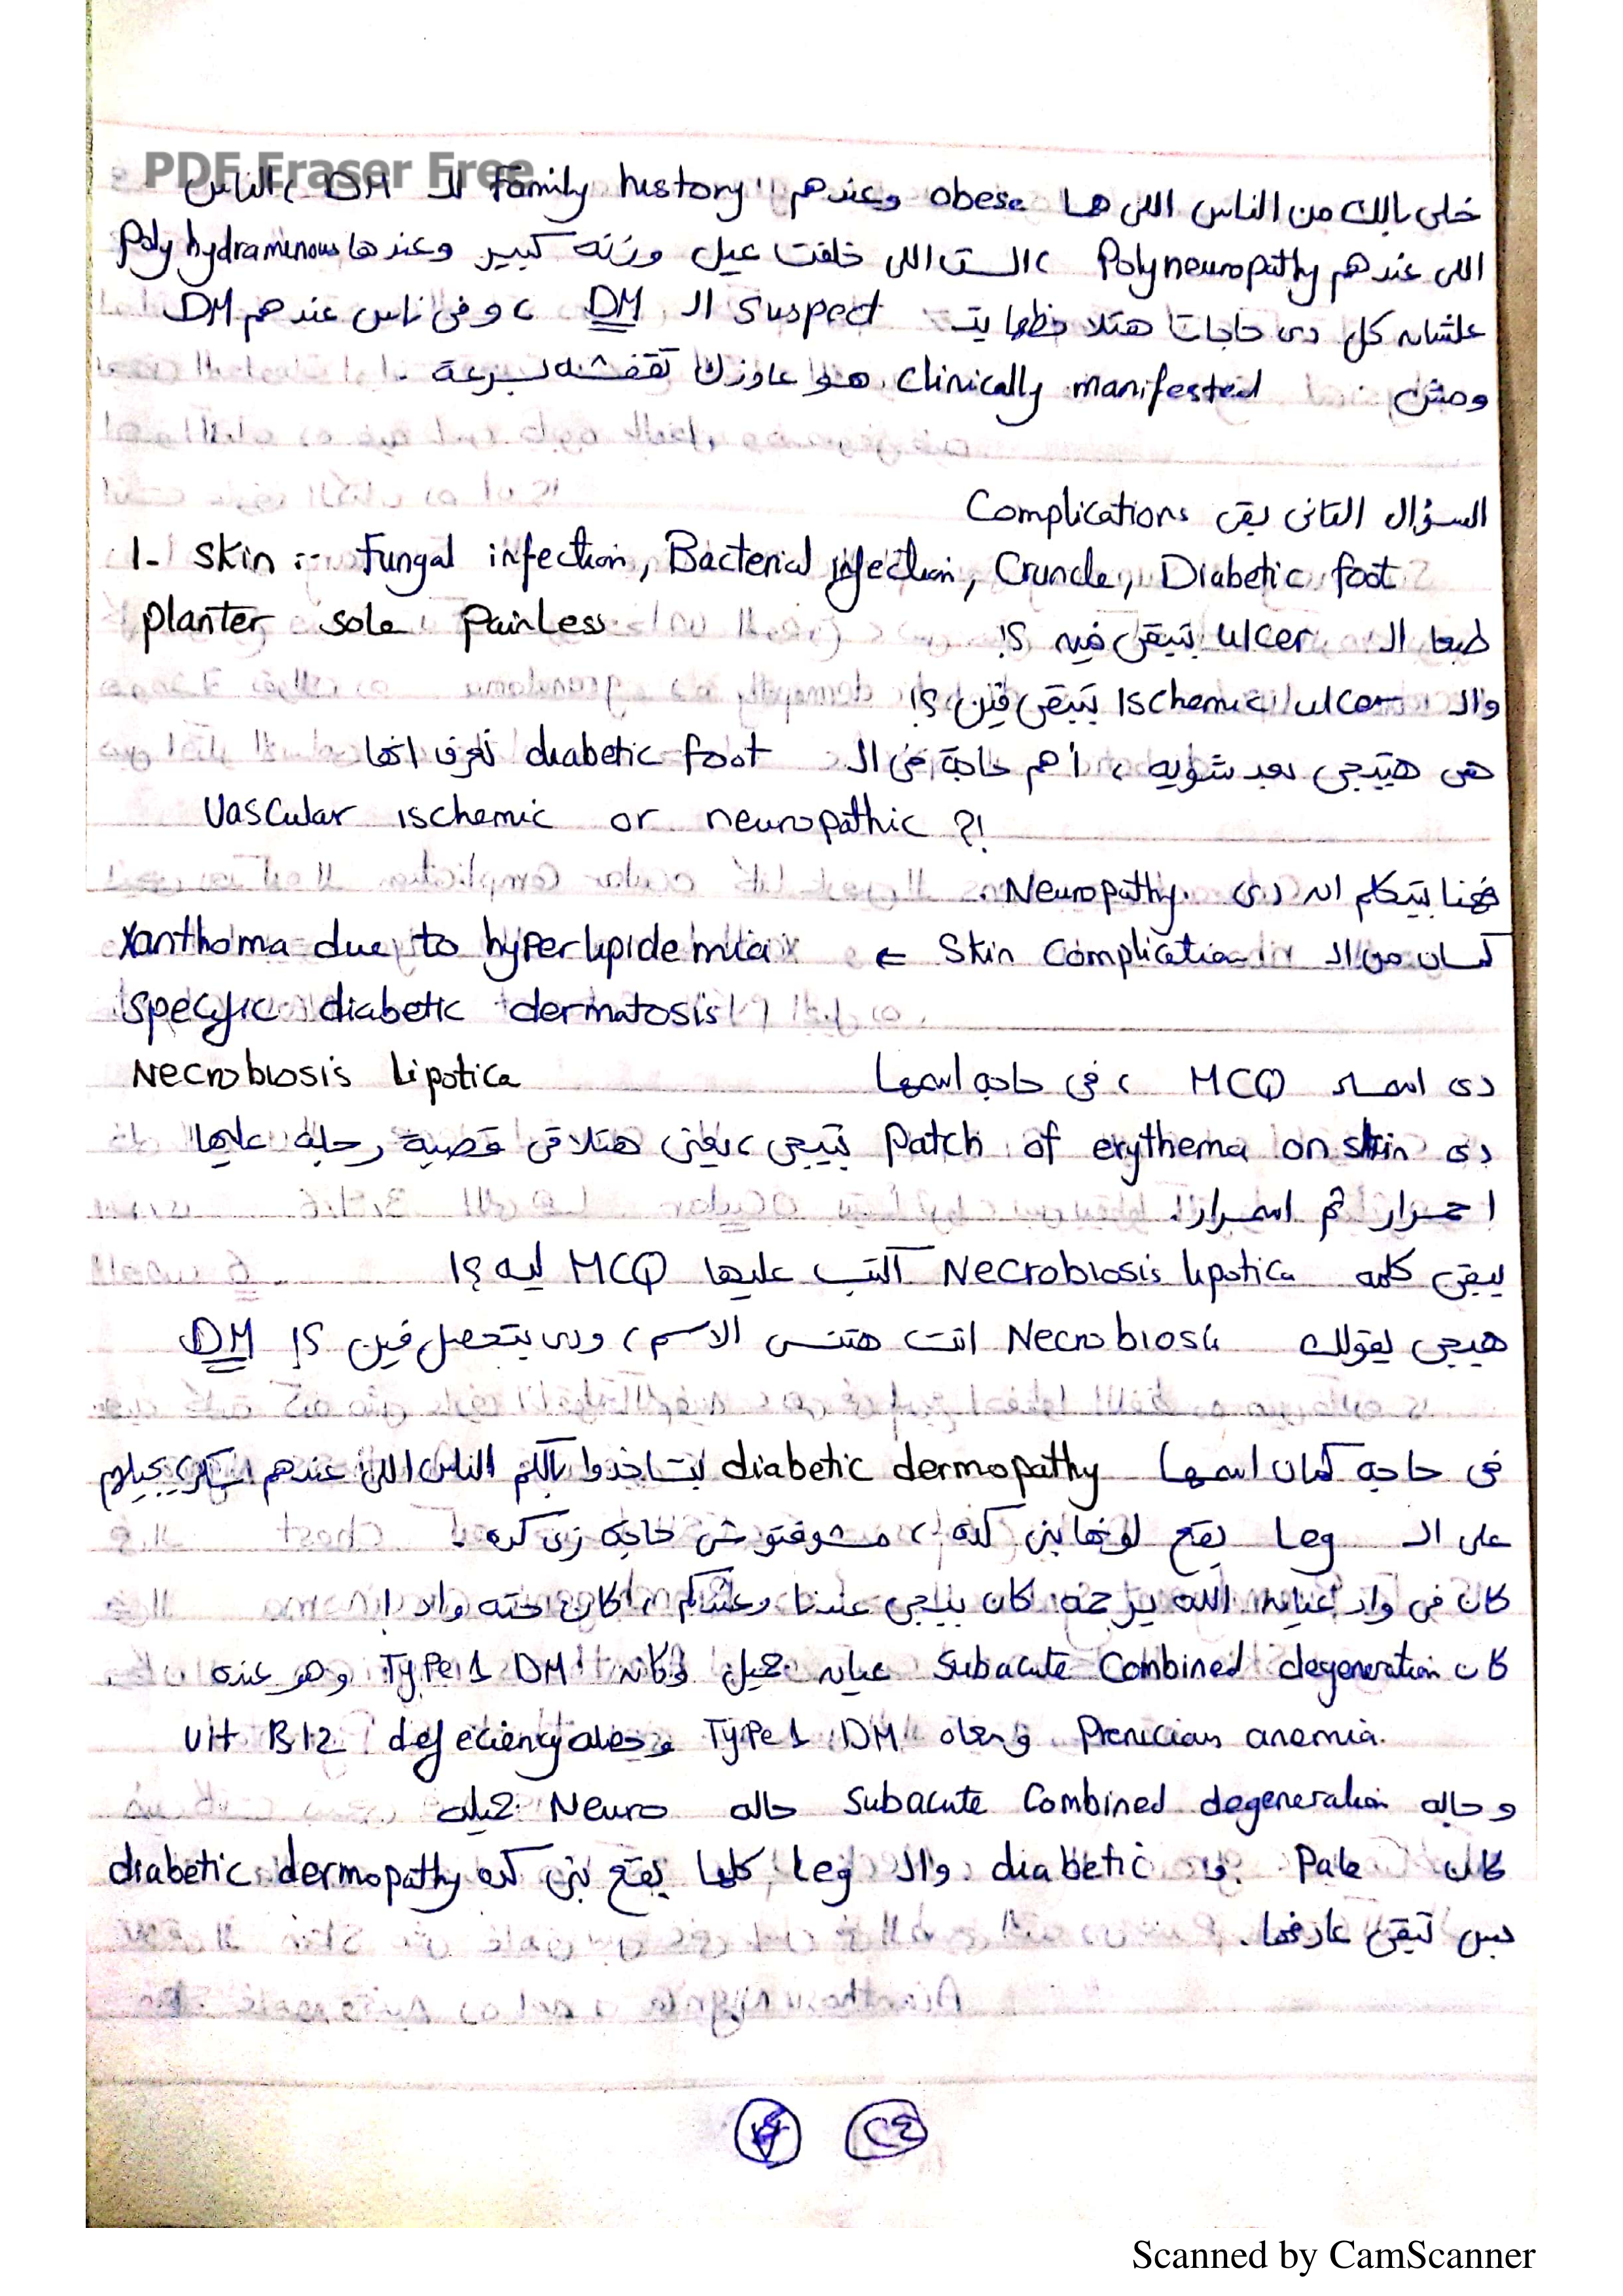 PDF Eraser Free
خلى بالك من الناس اللى هما obese وعندهم family history للـ DM ، الناس
اللى عندهم Polyneuropathy ، الست اللى خلفت عيل وزنه كبير وعندها Polyhydraminous
علشان كل دى حاجات هتلاحظها بتـ suspect الـ DM ، وفى ناس عندهم DM
ومش clinically manifested هوا عاوزك تقفشه بسرعة .
السؤال التانى بقى Complications
1- Skin :- Fungal infection, Bacterial infection, Cruncle, Diabetic foot
طبعا الـ ulcer بتبقى فيه ؟! planter sole Painless
والـ Ischemic ulcer بتبقى فين ؟!
هى هتيجى بعد شويه ، أهم حاجة فى الـ diabetic foot تعرف انها
Vascular ischemic or neuropathic ?!
فهنا بيتكلم ان دى Neuropathy.
كمان من الـ Skin Complication ⇐ Xanthoma due to hyperlipidemia
specific diabetic dermatosis
دى اسمها MCQ ، فى حاجه اسمها Necrobiosis Lipotica
دى Patch of erythema on skin بتيجى ، يعنى هتلاقى قصبة رجله عليها
احمرار ثم اسمرار.
يبقى كلمه Necrobiosis lipotica اكتب عليها MCQ ليه ؟!
هيجى يقولك Necrobiosis انت هتنسى الاسم ، ودى بتحصل فين ؟! DM
فى حاجه كمان اسمها diabetic dermopathy لبتاخدوا بالكم الناس اللى عندهم سكر بيجيلهم
على الـ Leg بقع لونها بنى كده ، مشوفتوش حاجه زى كده .
كان فى واد عيان الله يرحمه كان بييجى عندنا وعندكم ، كان حته واد !
كان Subacute Combined degeneration عيان جميل وكان Type 1 DM وهو عنده
Prenicious anemia. ومعاه Type 1 DM وجاله vit B12 defeciency
وجاله Subacute Combined degeneration حاله Neuro جميله
كان Pale و diabetic والـ Leg كلها بقع بنى كده diabetic dermopathy
بس تبقى عارفها.
٢٤
Scanned by CamScanner